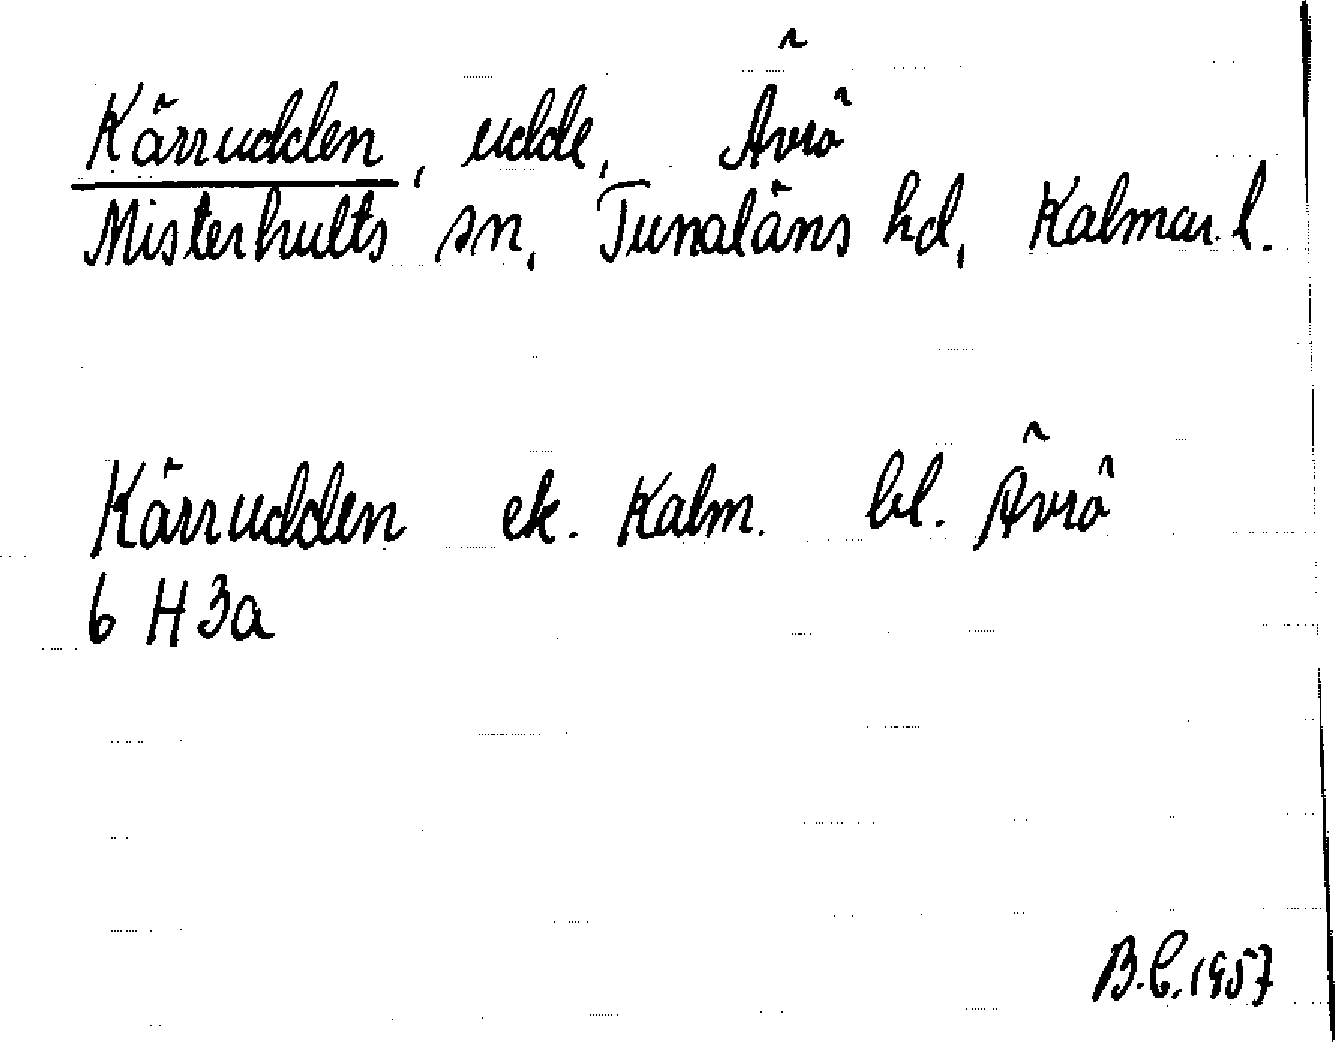 Kärrudden, udde, Ävrö
Misterhults sn, Tunaläns hd, Kalmar l.
Kärrudden ek. Kalm. bl. Ävrö
6 H 3a
B.C. 1957